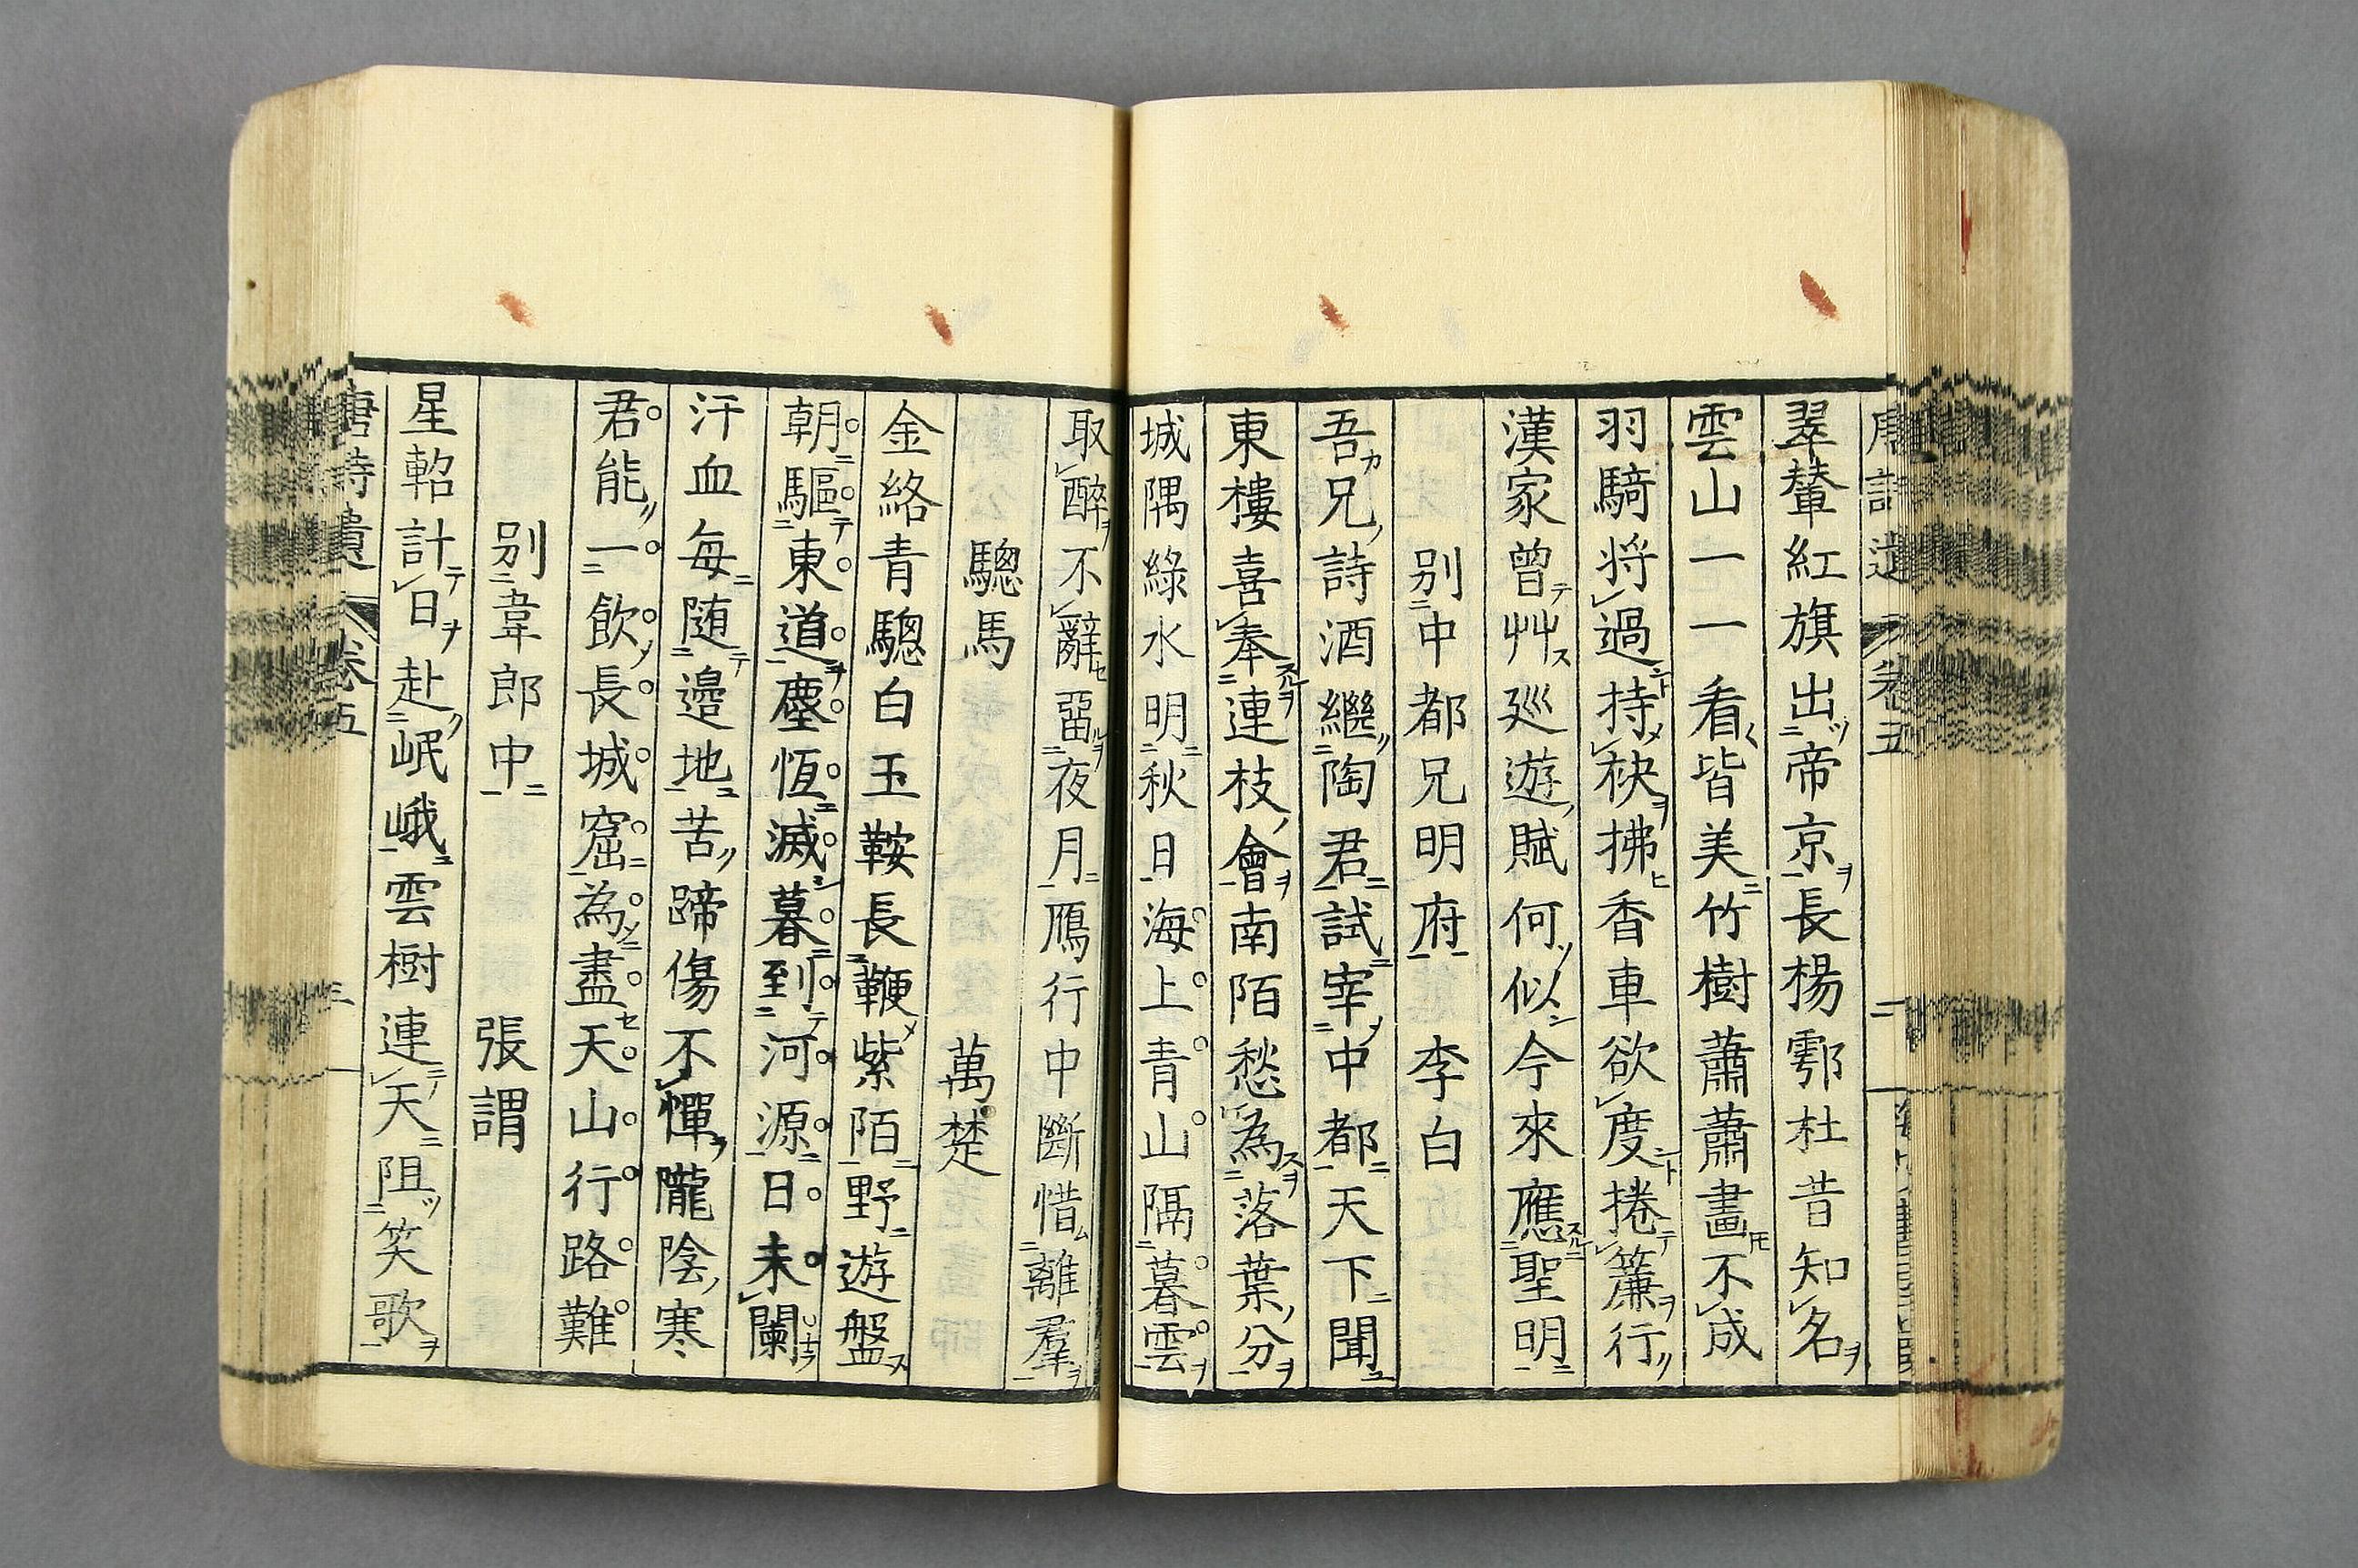 翠輦紅旗出帝京長楊鄠杜昔知名
雲山一一看皆美竹樹蕭蕭畫不成
羽騎將過持袂拂香車欲度捲簾行
漢家曾艸巡遊賦何似今來應聖明
別中都兄明府 李白
吾兄詩酒繼陶君試宰中都天下聞
東樓喜奉連枝會南陌愁為落葉分
城隅綠水明秋日海上青山隔暮雲
取醉不辭畱夜月鴈行中斷惜離羣
驄馬 萬楚
金絡青驄白玉鞍長鞭紫陌野遊盤
朝驅東道塵恆滅暮到河源日未闌
汗血每随邉地苦蹄傷不憚隴陰寒
君能一飲長城窟為盡天山行路難
別韋郎中 張謂
星軺計日赴岷峨雲樹連天阻笑歌
唐詩遺 卷五 三